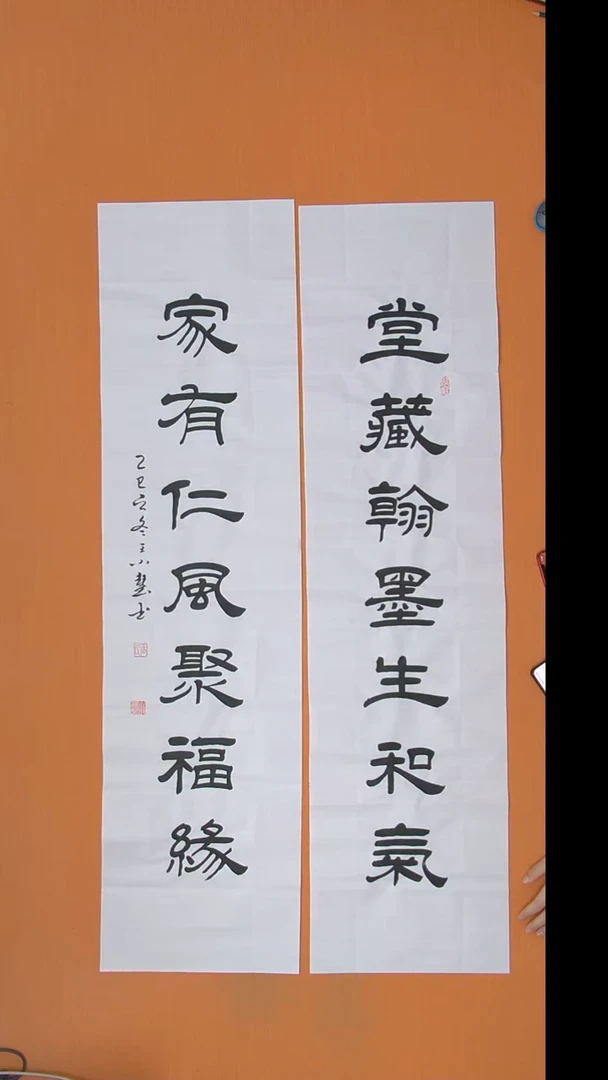 堂藏翰墨生和氣
家有仁風聚福緣
乙巳之冬王小慧书